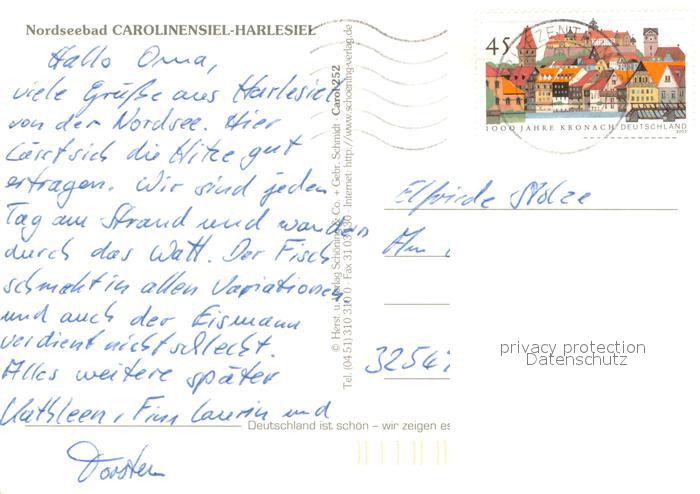 Nordseebad CAROLINENSIEL-HARLESIEL
Hallo Oma,
viele Grüße aus Harlesiel
von der Nordsee. Hier
lässt sich die Hitze gut
ertragen. Wir sind jeden
Tag am Strand und wandern
durch das Watt. Der Fisch
schmekt in allen Variationen
und auch der Eismann
verdient nicht schlecht.
Alles weitere später
Kathleen, Finn Laurin und
Torsten
© Herst. u. Verlag Schöning & Co. + Gebr. Schmidt
Tel. (04 51) 310 310 · Fax 31 03
Internet: http://www.schoening-verlag.de
Carol 252
45
1000 JAHRE KRONACH DEUTSCHLAND
Elfriede Stolze
Am
3254
privacy protection
Datenschutz
Deutschland ist schön – wir zeigen es